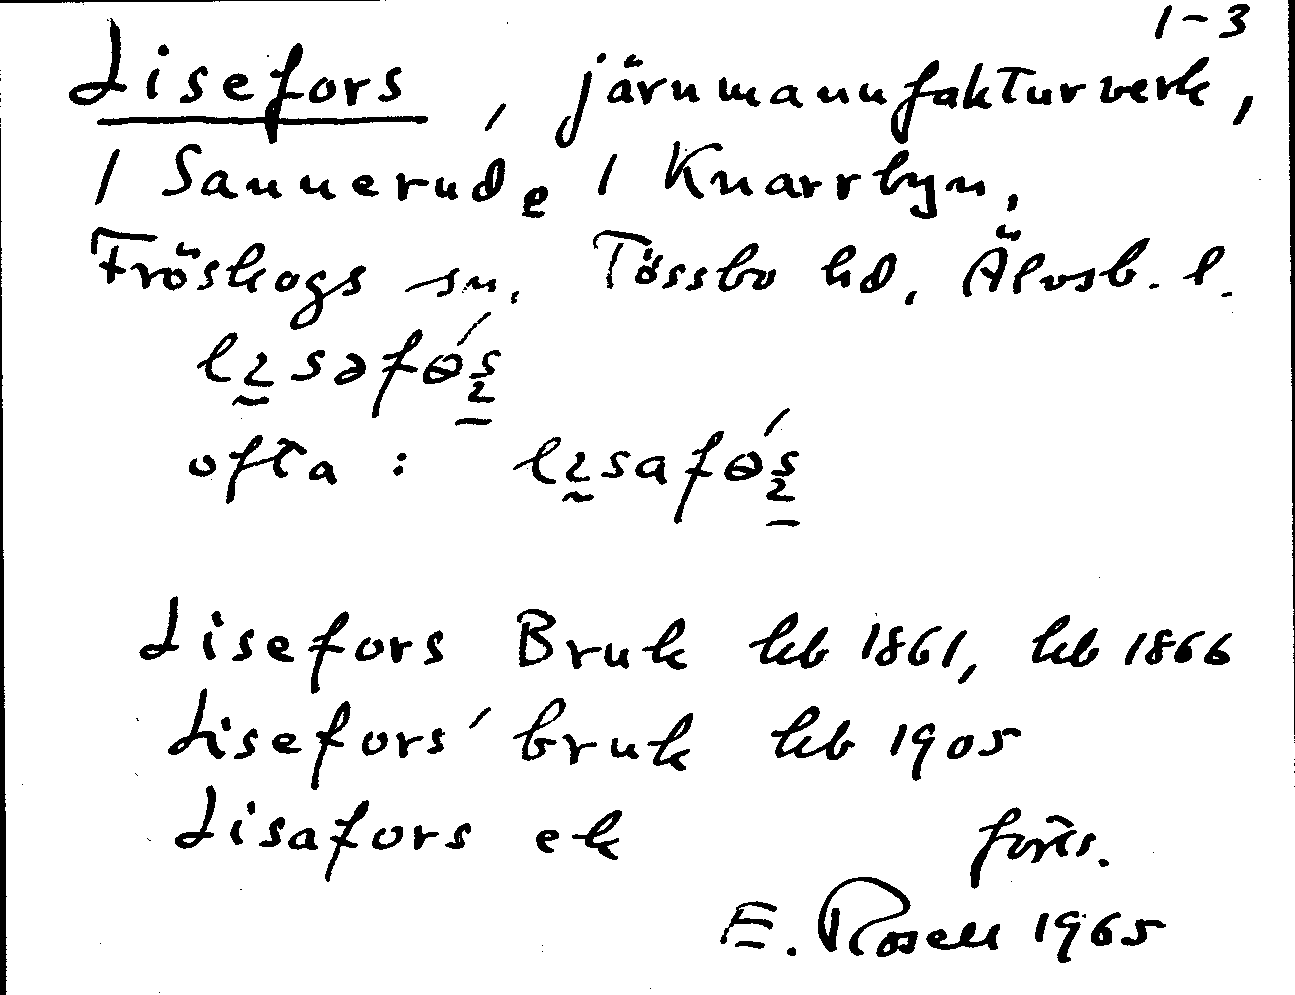 1-3
Lisefors, järnmanufakturverk,
/ Sannerud, / Knarrbyn,
Fröskogs sn, Tössbo hd, Älvsb. l.
ofta:
Lisefors Bruk kb 1861, kb 1866
Lisefors' bruk kb 1905
Lisafors ek
forts.
E. Rosell 1965